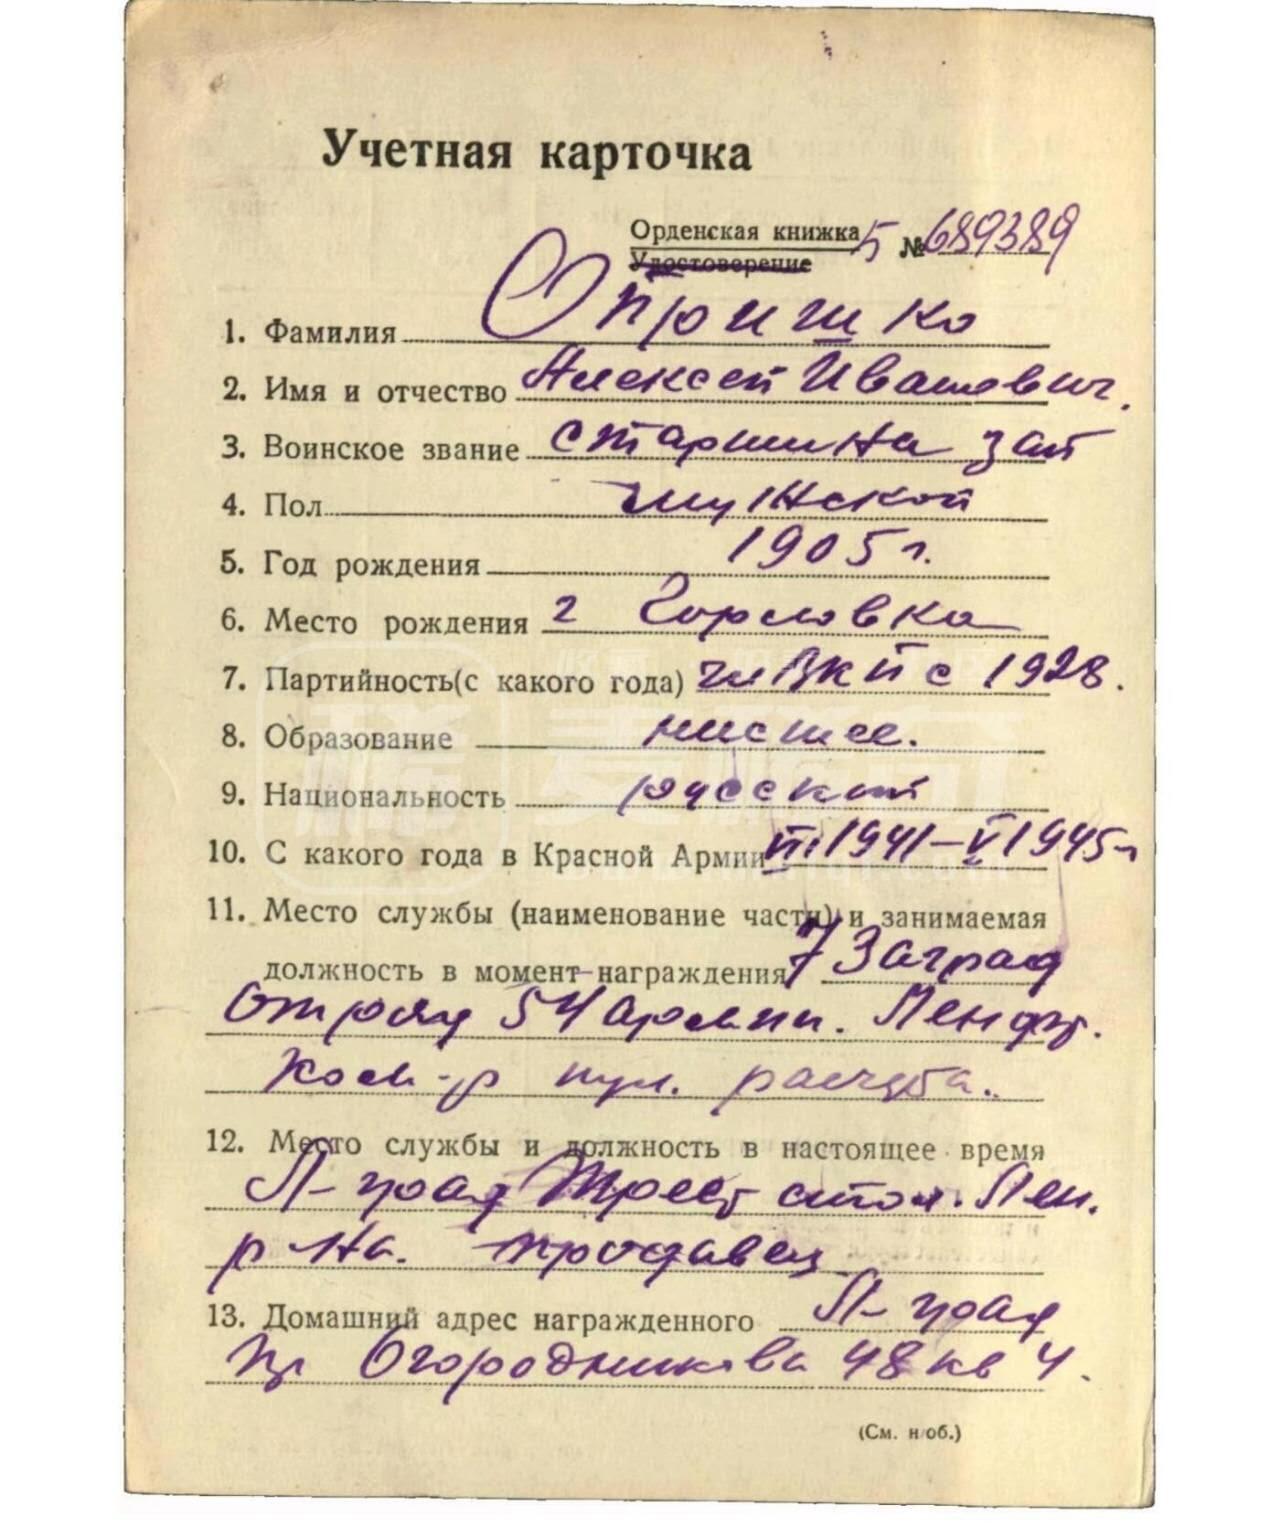 Учетная карточка
Орденская книжка Б № 689389
Удостоверение
1. Фамилия Опришко
2. Имя и отчество Алексей Иванович.
3. Воинское звание старшина зап
4. Пол мужской
5. Год рождения 1905 г.
6. Место рождения г Горловка
7. Партийность(с какого года) чл ВКП с 1928.
8. Образование низшее.
9. Национальность русский
10. С какого года в Красной Армии 1941–V 1945 г
11. Место службы (наименование части) и занимаемая
должность в момент награждения 7 Заград
Отряд 54 армии. Ленфр.
Ком-р пул. расчета.
12. Место службы и должность в настоящее время
Л-град Трест стол. Лен.
р-на. продавец
13. Домашний адрес награжденного Л-град
пр Огородникова 48 кв 4.
(См. н/об.)